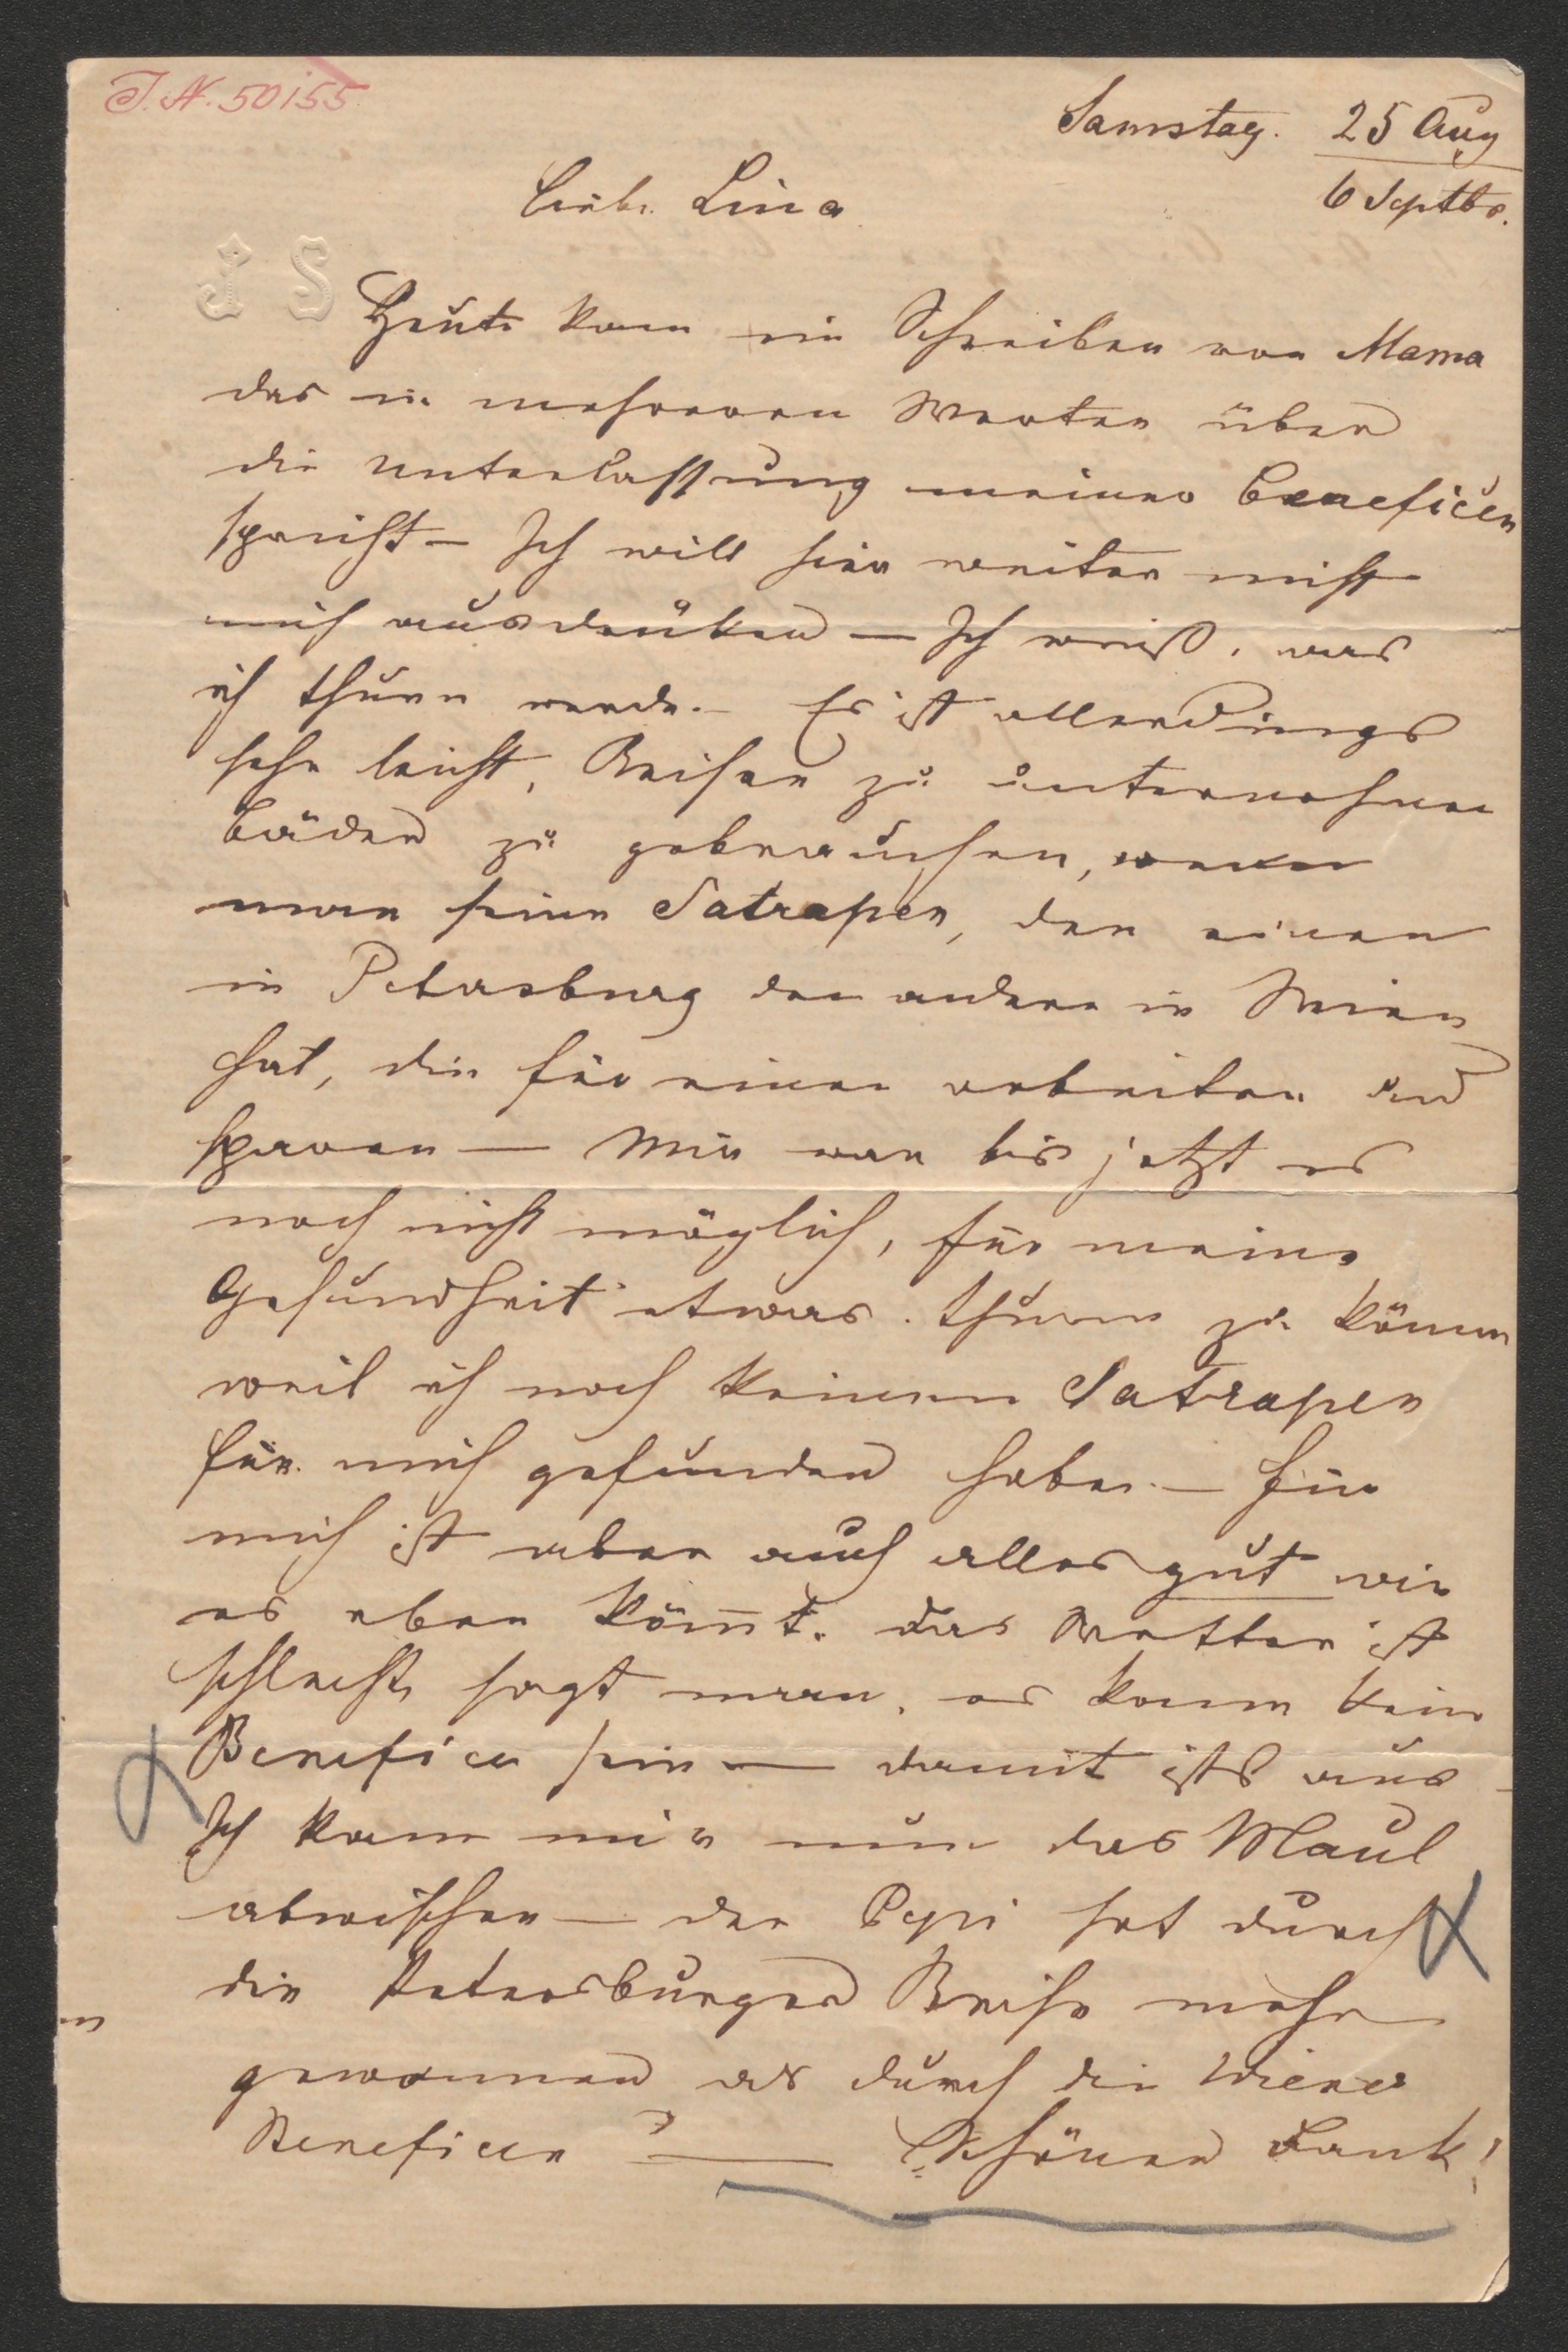 I. N. 50155
Samstag. 25 Aug
6 Septbr.
Liebe Lina
J S
Heute kam ein Schreiben von Mama
das in mehreren Worten über
die Unterlassung meiner Beneficen
spricht – Ich will hier weiter nicht
mich ausdrüken – Ich weiß, was
ich thuen werde. – Es ist allerdings
sehr leicht, Reisen zu unternehmen
Bäder zu gebrauchen, wenn
man seine Satrapen, den einen
in Petersburg den andern in Wien
hat, die für einen arbeiten und
sparen – Mir war bis jetzt es
noch nicht möglich, für meine
Gesundheit etwas thuen zu können
weil ich noch keinen Satrapen
für mich gefunden habe. – Für
mich ist aber auch alles gut wie
es eben kömt. Das Wetter ist
schlecht, sagt man, es kann kein
Benefice sein – damit ists aus –
Ich kann mir nun das Maul
abwischen – der Pepi hat durch
die Petersburger Reise mehr
gewonnen als durch die Wiener
Beneficen ? – Schönen Dank!